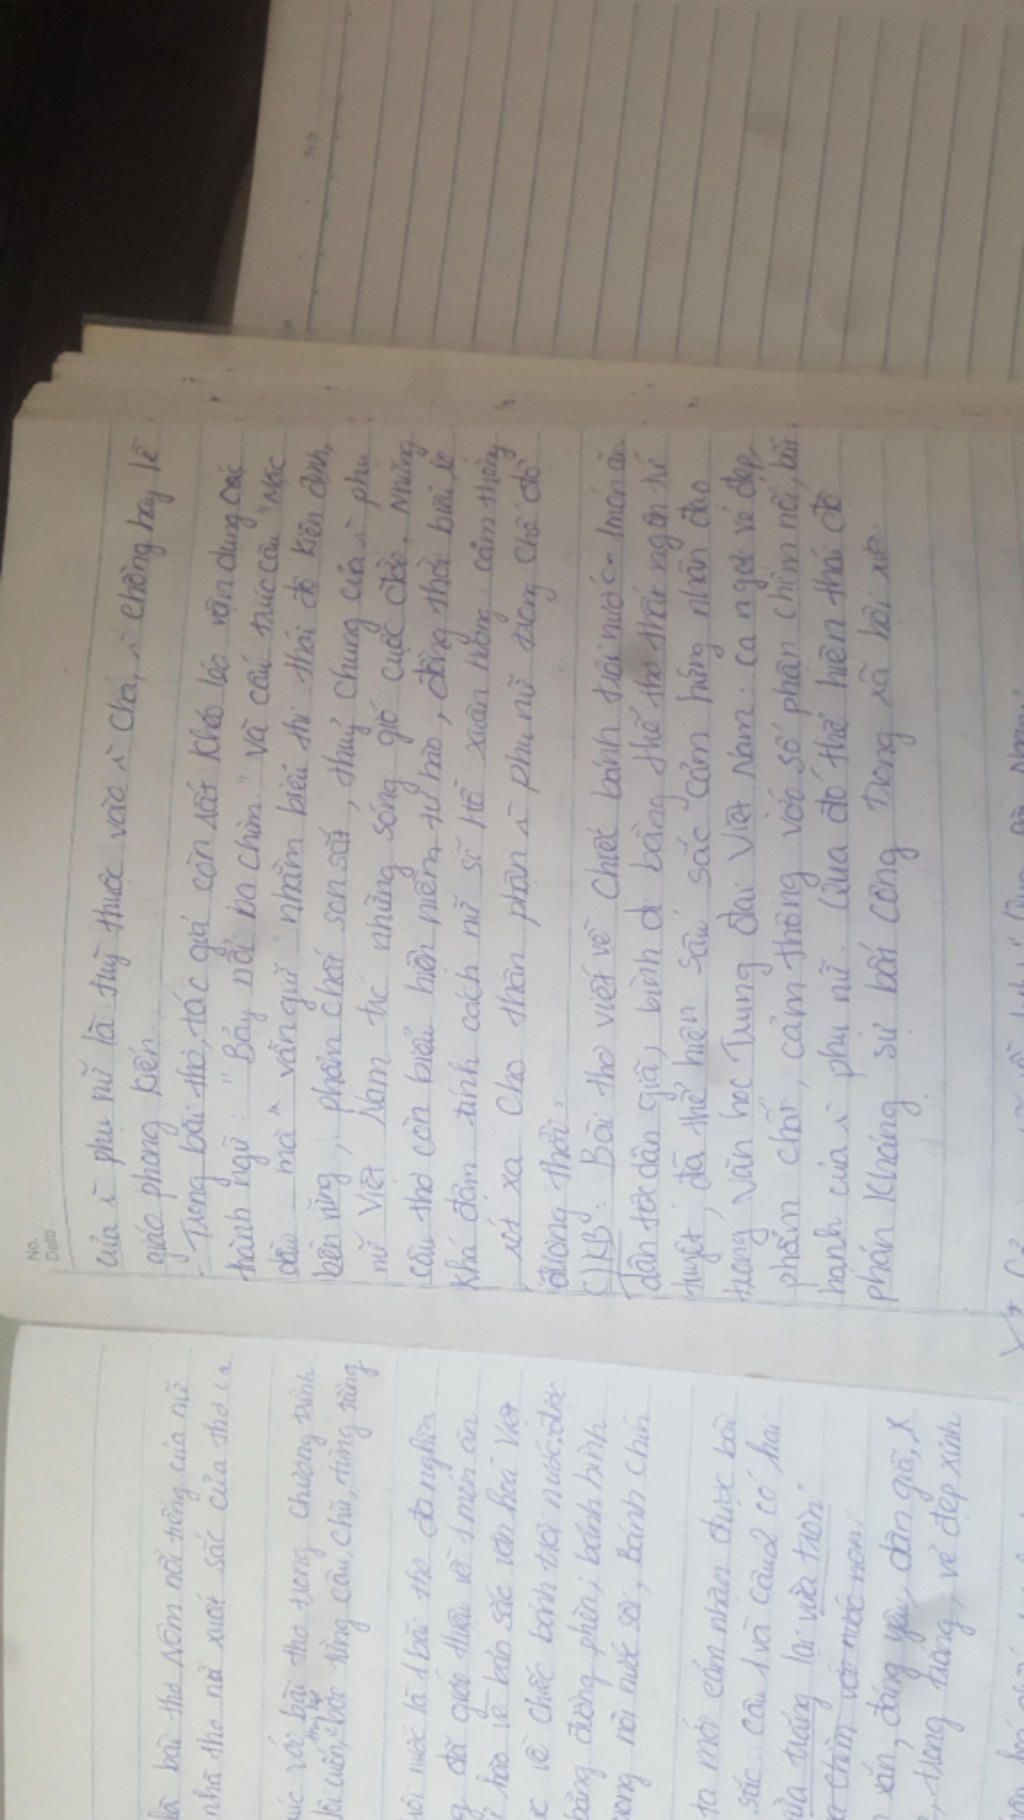 bài thơ Nôm nổi tiếng của nữ
nhà thơ nữ xuất sắc của thơ ca
với bài thơ trong chương trình
từng câu, chữ, từng
nước là 1 bài thơ đa nghĩa
đã giới thiệu về 1 món ăn
hào về bản sắc văn hoá Việt
về chiếc bánh trôi nước, được
bằng đường phèn, bánh hình
trong nồi nước sôi, Bánh chín
ta mới cảm nhận được bài
sắc. Câu 1 và câu 2 có hai
vừa trắng lại vừa tròn"
chìm với nước non"
xắn, đáng yêu, dân giã,
trong trắng, vẻ đẹp xinh
No.
Date
của ~ phụ nữ là tuỳ thuộc vào ~ cha, ~ chồng hay lễ
giáo phong kiến.
- Trong bài thơ, tác giả còn rất khéo léo vận dụng các
thành ngữ: "Bảy nổi ba chìm" và cấu trúc câu "Mặc
dầu mà vẫn giữ" nhằm biểu thị thái độ kiên định,
bền vững, phẩm chất son sắt, thuỷ chung của ~ phụ
nữ Việt Nam trc những sóng gió cuộc đời. Những
câu thơ còn biểu hiện niềm tự hào, đồng thời
khá đậm tính cách nữ sĩ Hồ Xuân Hương: cảm thông
xót xa cho thân phận ~ phụ nữ trong chế độ
đương thời.
C) KB: Bài thơ viết về chiếc bánh trôi nước - 1 món ăn
dân tộc dân giã, bình dị bằng thể thơ thất ngôn tứ
tuyệt, đã thể hiện sâu sắc cảm hứng nhân đạo
trong văn học Trung đại Việt Nam: ca ngợi vẻ đẹp,
phẩm chất, cảm thông với số phận chìm nổi, bất
hạnh của ~ phụ nữ. Qua đó thể hiện thái độ
phản kháng sự bất công trong xã hội xưa.
No